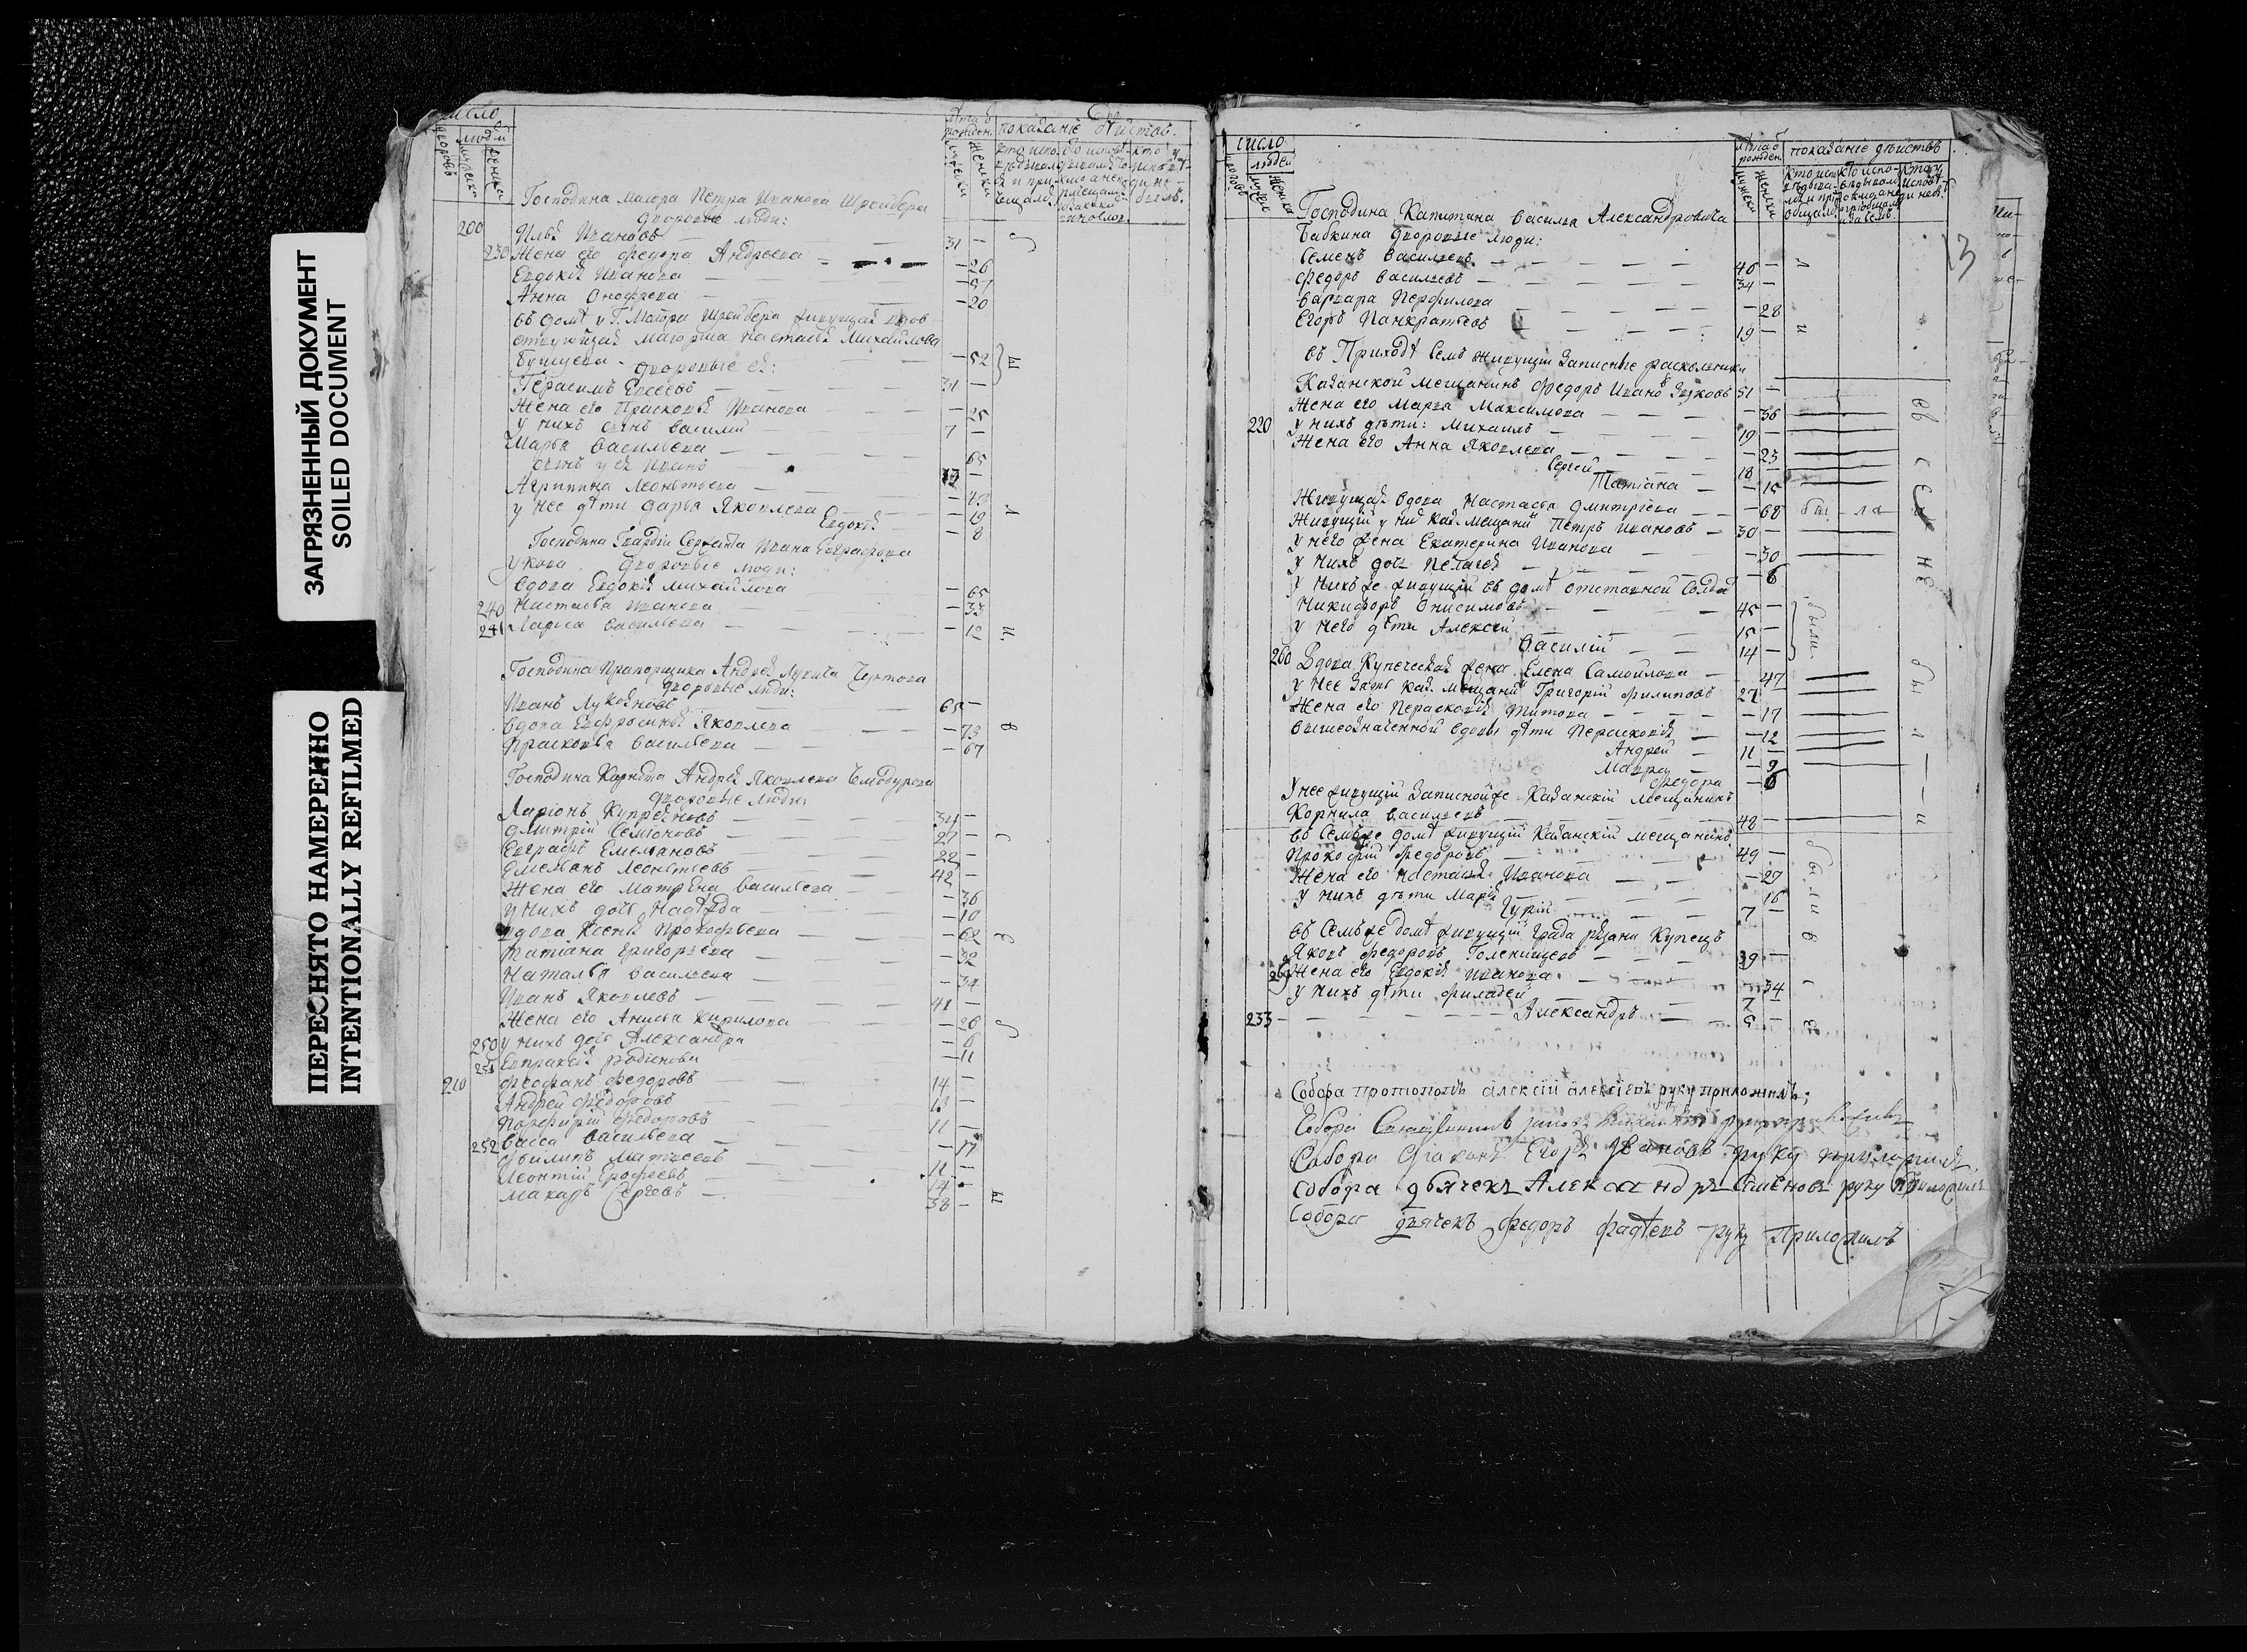 ЗАГРЯЗНЕННЫЙ ДОКУМЕНТ
SOILED DOCUMENT
ПЕРЕСНЯТО НАМЕРЕННО
INTENTIONALLY REFILMED
число
людей
показаніе
Господина Маіора Петра Иванова Шрейбера
дворовые люди:
200 Илья Ивановъ 31
230 Жена его Федора Андреева 26
Евдокія Иванова
Анна Онофреева 20
въ домѣ у Г. Маіора Шрейбера живущая вдов
ствующая маіорша Настасья Михайлова
52
дворовые ея:
Герасимъ Евсеевъ 31
Жена его Прасковья Иванова 25
у нихъ сынъ Василій 7
Марья Васильева 65
сынъ у ея Иванъ
Агрипина Леонтьева
у нее дѣти Дарья Яковлева 19
Евдокія 8
Господина Гвардіи Сержанта Ивана Евграфова
дворовые люди:
вдова Евдокія Михайлова 65
240 Настасья Иванова 33
241 Лариса Васильева 12
Господина Прапорщика Андрея Лукича
дворовые люди:
Иванъ Лукояновъ 65
вдова Евфросинья Яковлева 73
Прасковья Васильева 67
Господина Корнета Андрея Яковлева
дворовые люди
Ларіонъ Купреяновъ 34
Дмитрій Семіоновъ 27
Евграфъ Емельяновъ 22
Емельянъ Леонтьевъ 42
Жена его Матрена Васильева 36
у нихъ дочь Надежда 10
вдова Ксенья Прокофьева 62
Татіана Григорьева 32
Наталья Васильева 34
Иванъ Яковлевъ 41
Жена его Анисья Кирилова 26
250 у нихъ дочь Александра 6
251 Евпраксія Родіонова 11
210 Феофанъ Федоровъ 14
Андрей Федоровъ 13
Порфирій Федоровъ 11
252 Васса Васильева 17
Филипъ Матвеевъ 12
Леонтій Ерофеевъ 14
Макаръ Сергеевъ 38
число
людей
показаніе дѣиствъ
13
Господина Капитана Василья Александровича
Бабкина дворовые люди:
Семенъ Васильевъ 46
Федоръ Васильевъ 34
Варвара Перфилова 28
Егоръ Панкратьевъ 19
въ Приходѣ Семъ живущіи Записные раскольники
Казанской мещанинъ Федоръ Ивано 51
Жена его Марѳа Максимова 56
220 у нихъ дѣти: Михаилъ 19
Жена его Анна Яковлева 23
Сергей 18
Татіана 15
Живущая вдова Настасья Дмитріева 68 бы-ла
Живущій у ни Каз. мещани Петръ Ивановъ 30
у него жена Екатерина Иванова 30
у нихъ дочь Пелагея 6
у нихъ же живущій въ домѣ отставной Солда
Никифоръ Онисимовъ 45 были
у него дѣти Алексей 15
Василій 14
260 Вдова Купеческая жена Елена Самойлова 47
у нее зять Каз. мещани Григорій Филиповъ 27
Жена его Перасковья Титова 17
вышеозначенной вдовы дѣти Перасковія 12
Андрей 11
Мавра 9
Федора 6
у нее живущій Записной же Казанскій мещанинъ
Корнила Васильевъ 48
въ Семъ же домѣ живущій Казанскій мещанинъ
Прокофій Федоровъ 49
Жена его Настасья Иванова 29
у нихъ дѣти Марія 16
Гурій 7
въ Семъ же домѣ живущій града Рязани Купецъ
Яковъ Федоровъ Голенищевъ 39
Жена его Евдокія Иванова 34
у нихъ дѣти Филофей 7
233 Александръ 5
Собора протопопъ алексій алексіевъ руку приложилъ;
Собора Священникъ
Собора Діаконъ Егоръ Ивановъ руку приложилъ
собора дьячекъ Александръ Семеновъ руку приложилъ
Собора дьячекъ Федоръ Фадѣевъ руку приложилъ